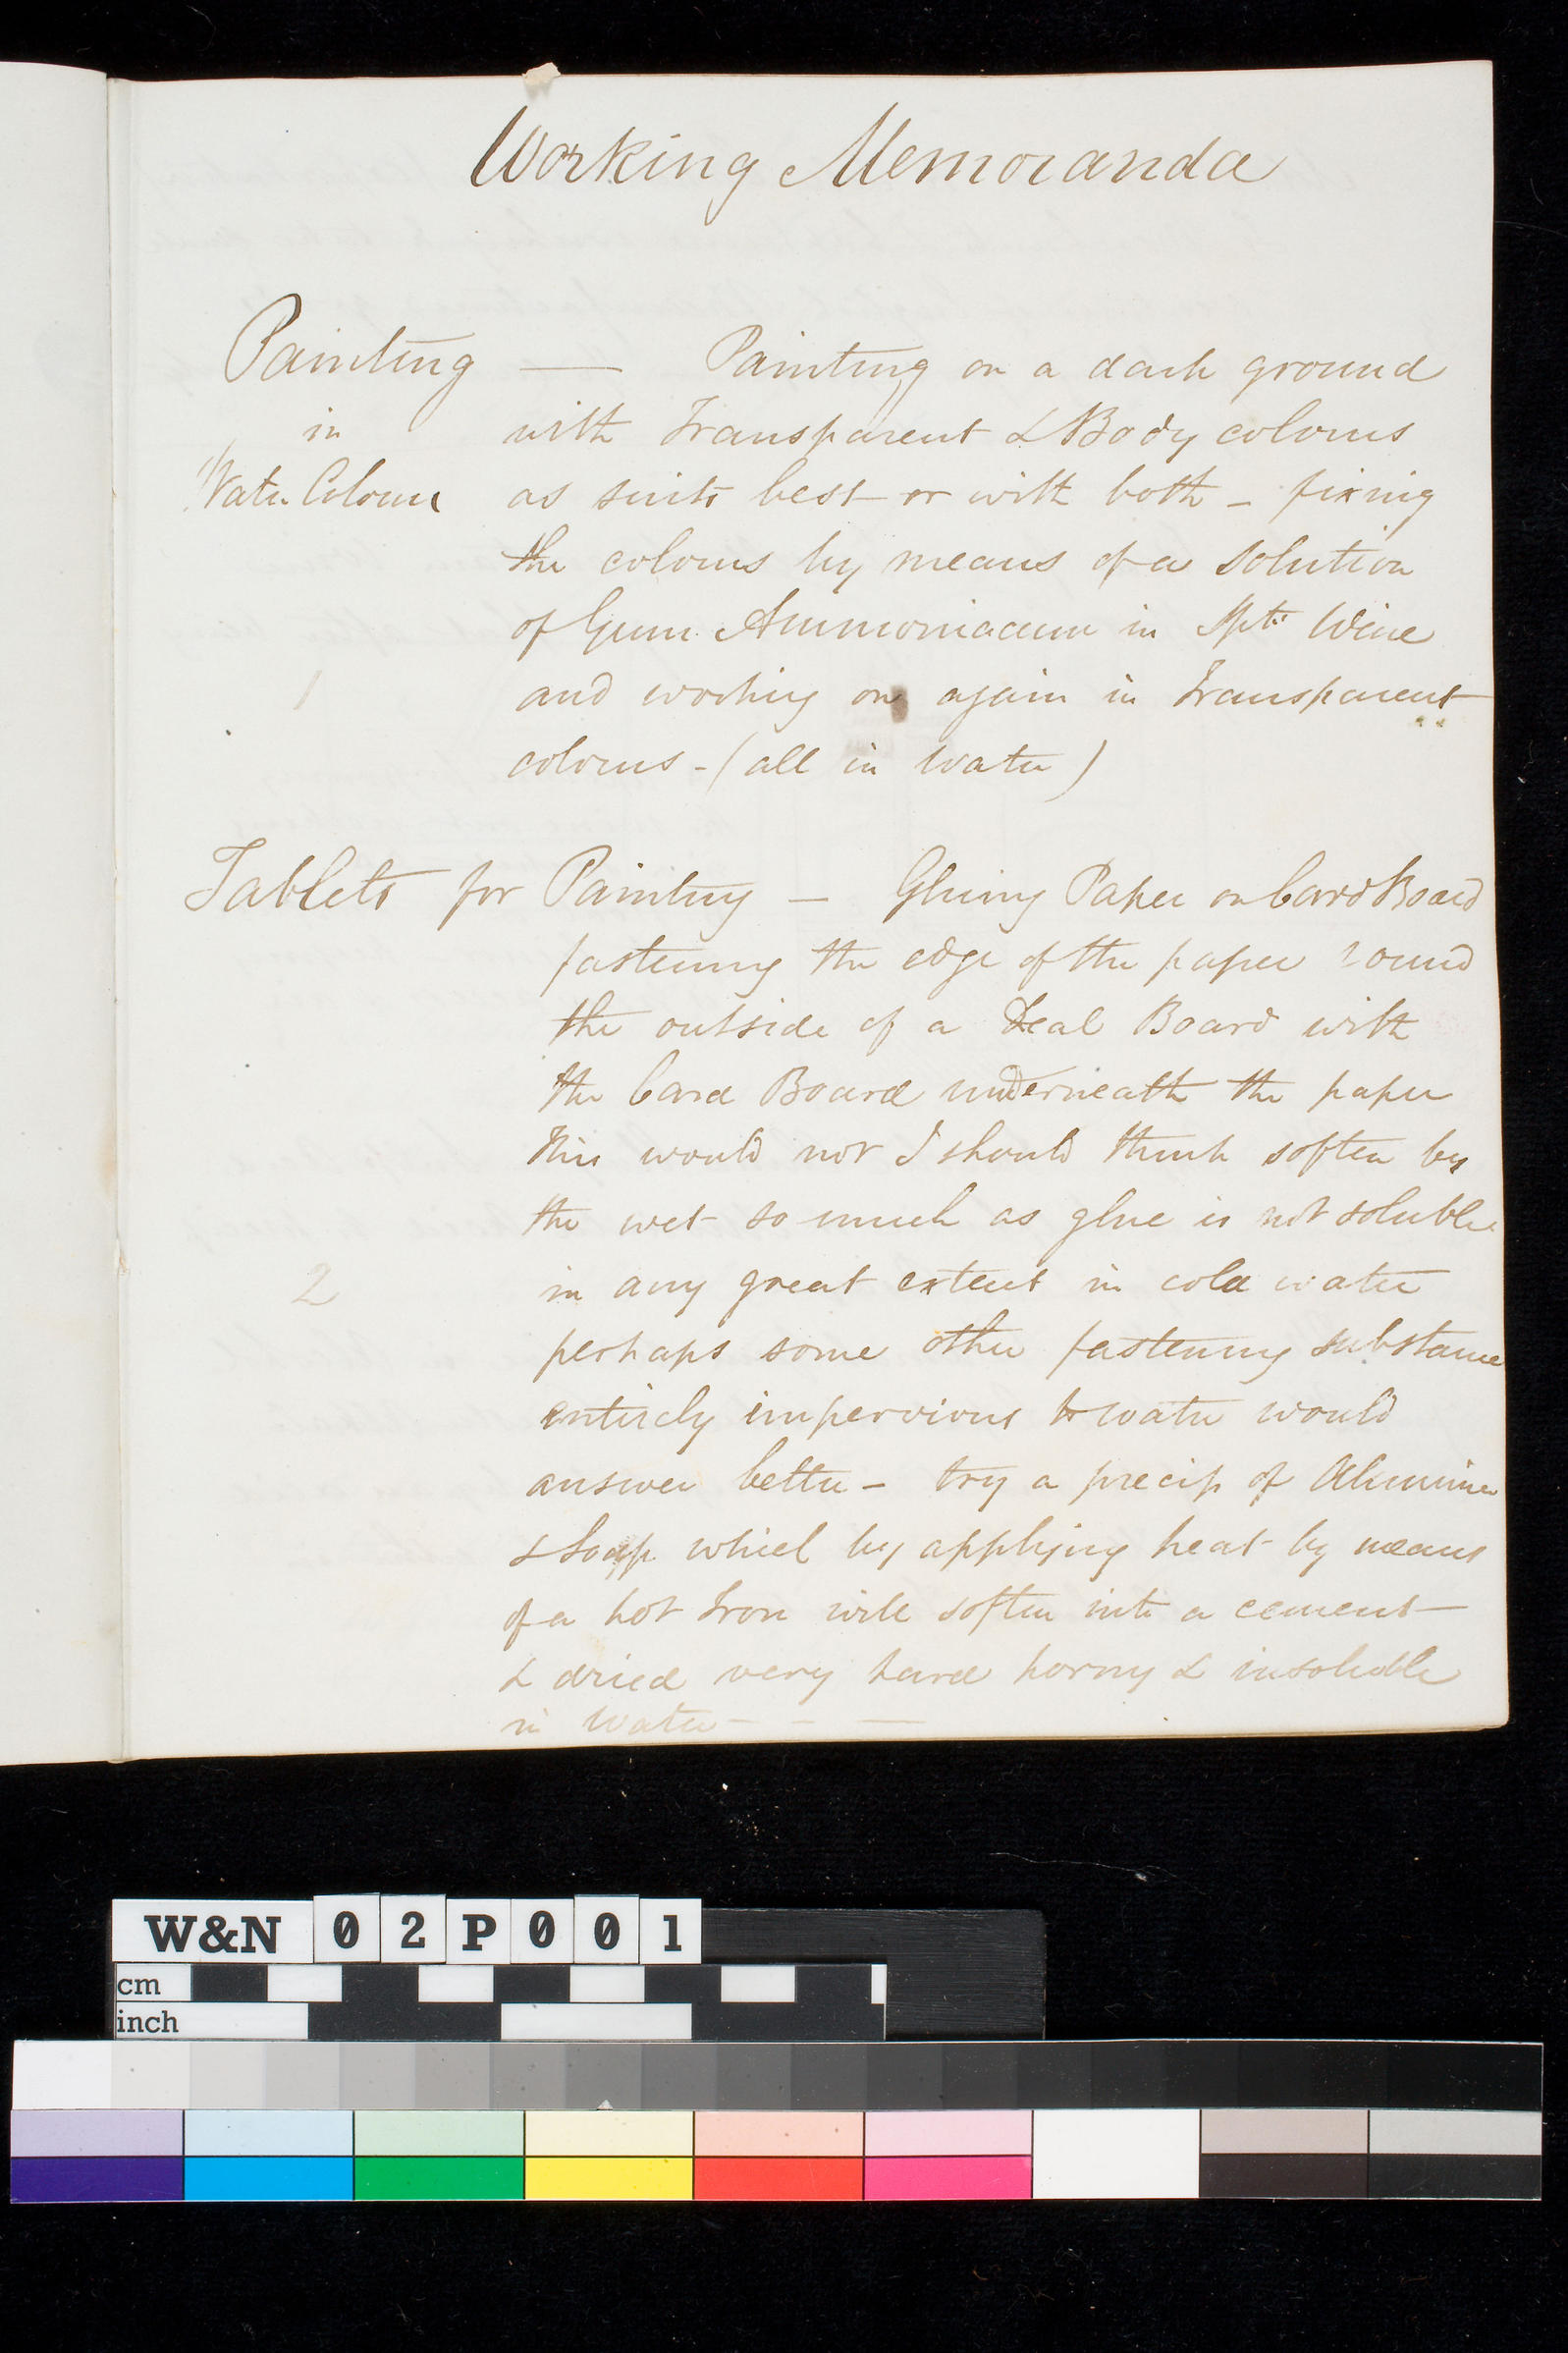 Working Memoranda
Painting — Painting on a dark ground
in with Transparent & Body colours
Water Colour as suits best or with both – fixing
the colours by means of a solution
of Gum Ammoniacum in Spts Wine
1 and working on again in Transparent
colours – (all in water)
Tablets for Painting — Gluing Paper on Card Board
fastening the edge of the paper round
the outside of a Deal Board with
the Card Board underneath the paper
This would not I should think soften by
the wet so much as glue is not soluble
2 in any great extent in cold water
perhaps some other fastening substance
entirely impervious to water would
answer better – try a precip of Alumina
& Soap which by applying heat by means
of a hot Iron will soften into a cement
& dried very hard horny & insoluble
in Water – – —
W&N 02P001
cm
inch